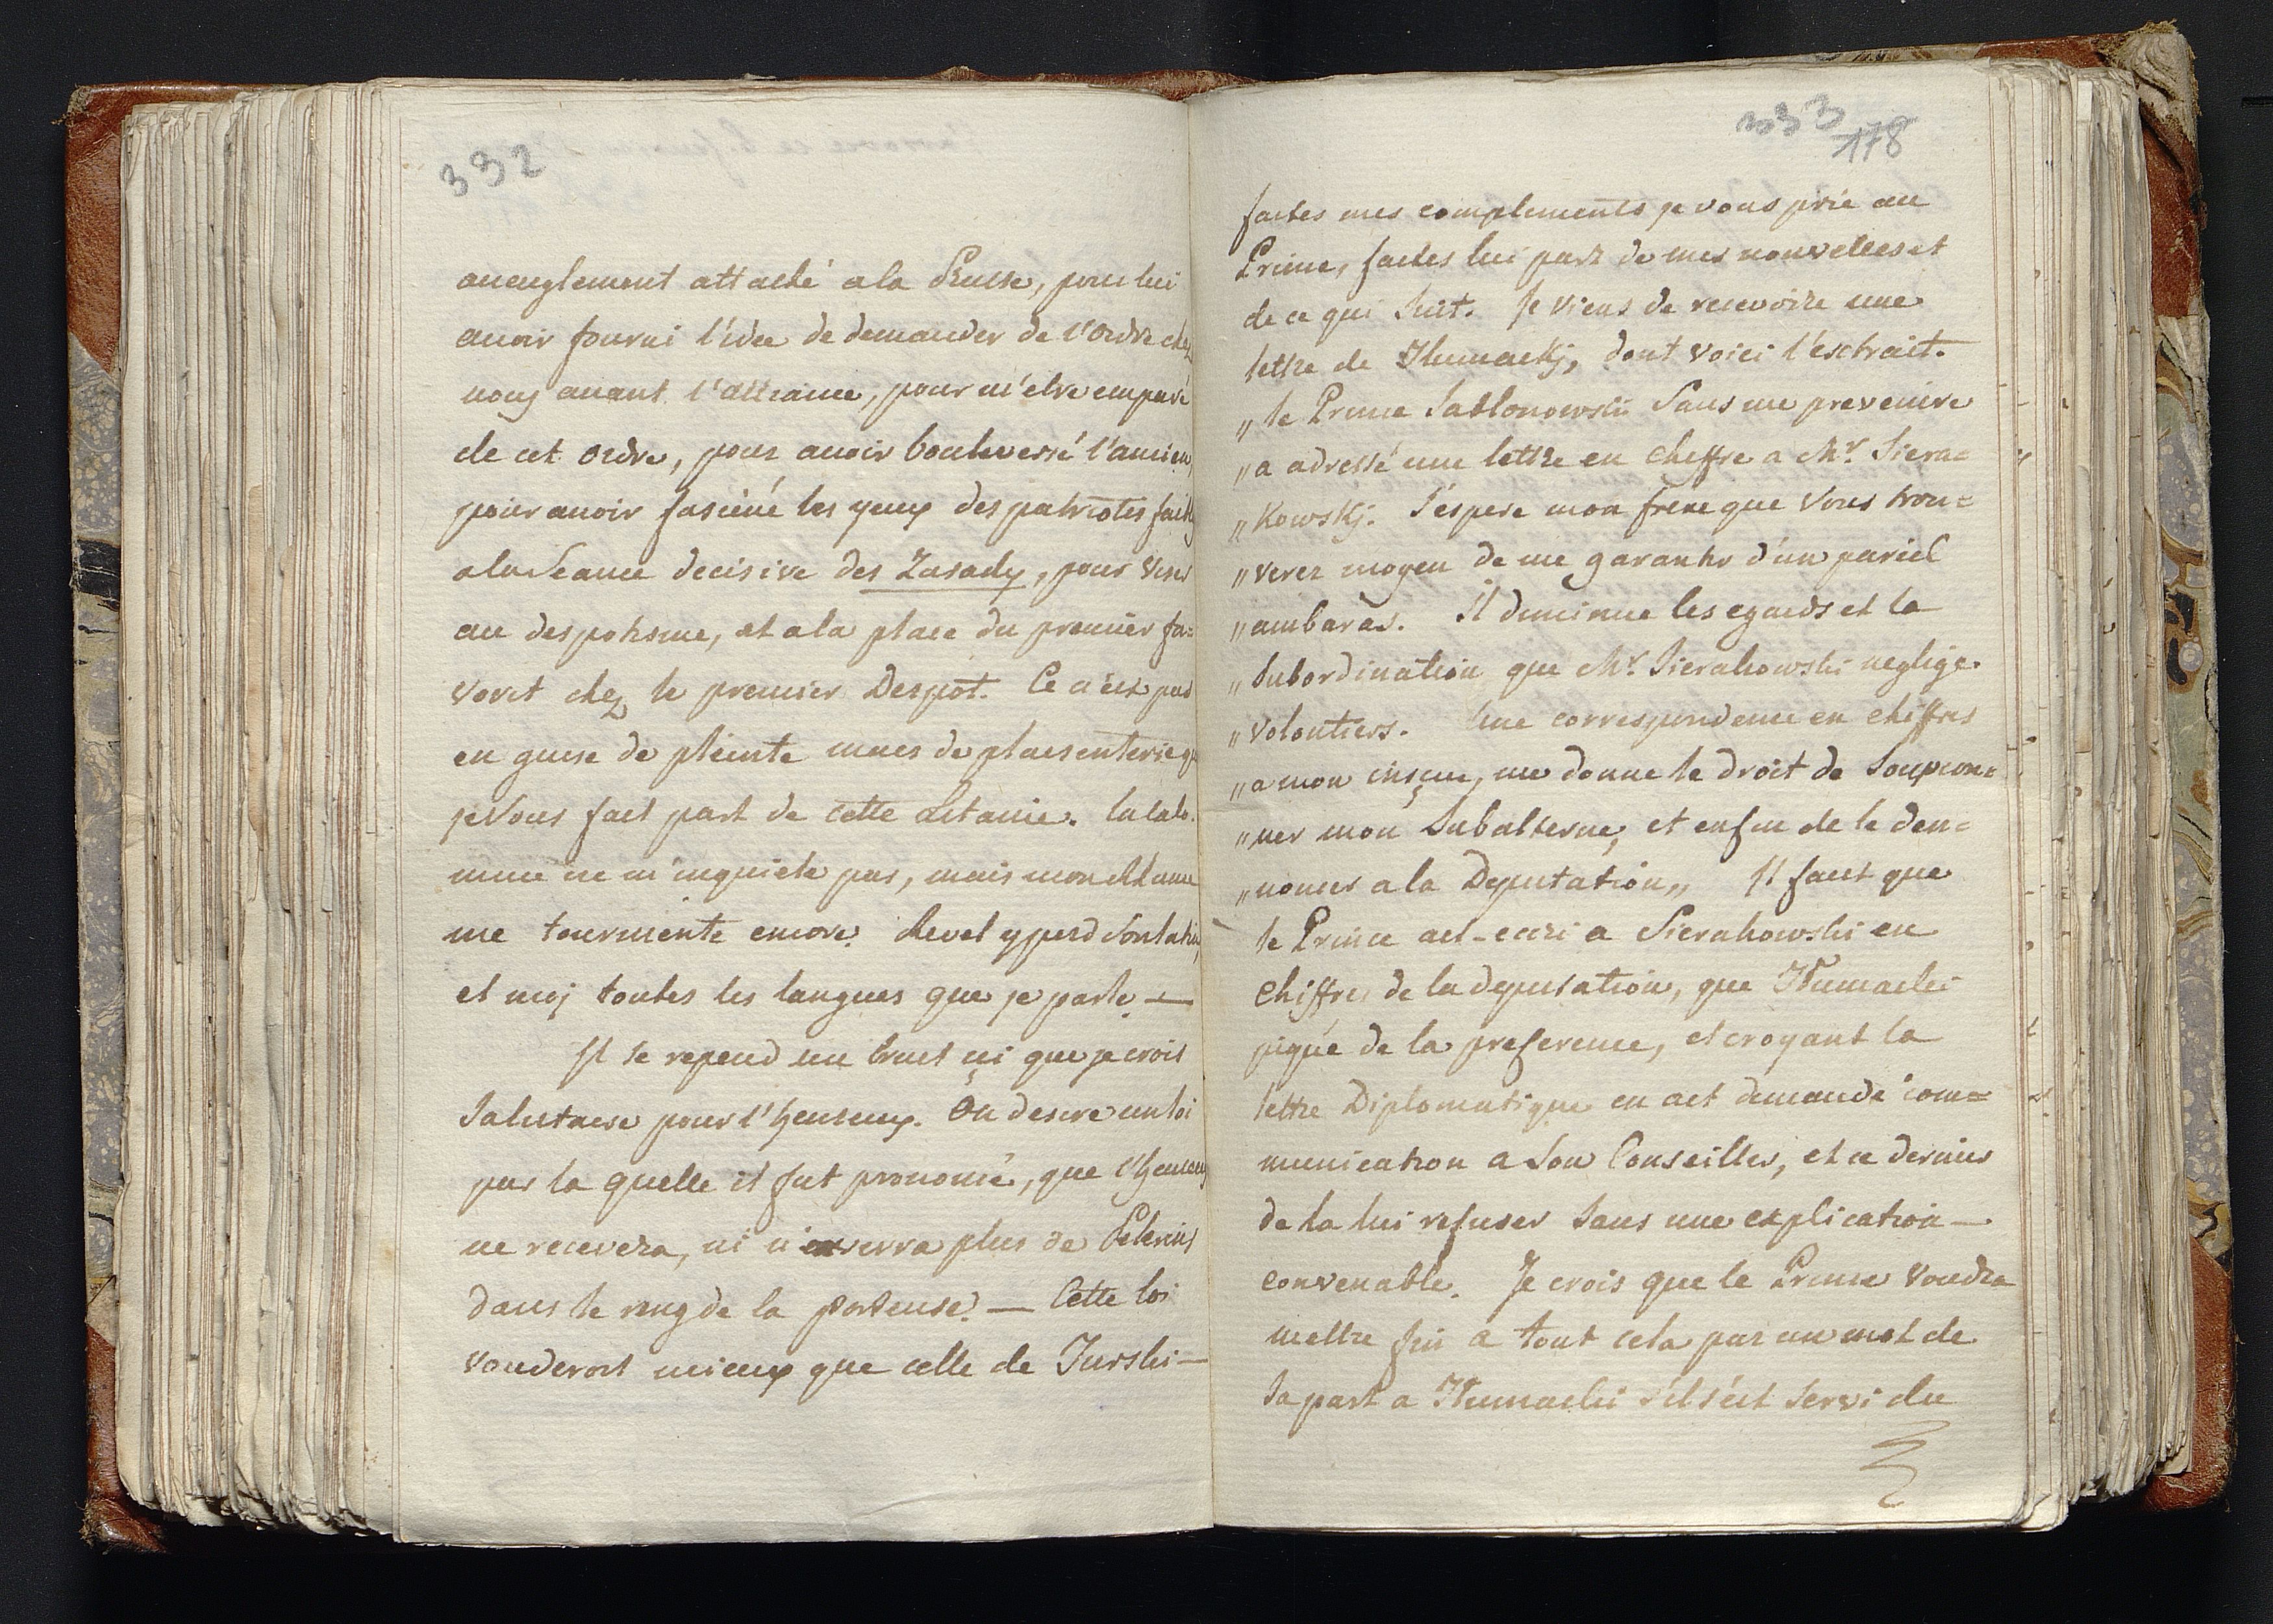 332
aneuglement attaché a la Prusse, pour lui
auoir fourni l'idée de demander de l'ordre chez
nous auant l'alliance, pour m'etre emparé
de cet ordre, pour auoir bouleversé l'ancien,
pour auoir fasciné les yeux des patriotes
a la Seance decisive des Zasady, pour viser
au despotisme, et a la place du premier fa=
vorit chez le premier Despot. Ce n'est pas
en guise de pleinte mais de plaisenterie
je Vous fait part de cette Litanie. la calo.
mnie ne m'inquiete pas, mais mon Rhume
me tourmente encore. Revel y perd son latin,
et moj toutes les langues que je parle —
Il se repend un bruit içi que je crois
Salutaire pour l'heureux. On desire un loi
par la quelle il fut prononcé, que l'heureux
ne recevera, ni n'enverra plus de Pelerins
dans le rang de la porteuse. — Cette loi
vauderoit mieux que celle de Turski —
333
178
faites mes complements je vous prie au
Prince, faites lui part de mes nouvelles et
de ce qui suit. Je viens de recevoire une
lettre de Tlumackj, dont voici l'esctrait.
„ le Prince Jablonowski Sans me prevenire
„ a adressé une lettre en cheffre a Mr. Siera=
„ Kowskj. J'espere mon frere que Vous trou=
„ verez moyen de me garantir d'un pariel
„ ambaras. Il diminue les egards et la
„ Subordination que Mr. Sierakowski neglige
„ Volontiers. Une correspondence en chiffres
„ a mon insçue, me donne le droit de Soupcon=
„ ner mon Subalterne, et enfin de le den=
„ noncer a la Deputation „ Il faut que
le Prince aet-ecri a Sierakowski en
Chiffres de la deputation, que Tlumacki
piqué de la preference, et croyant la
lettre Diplomatique en aet demandé com=
munication a Son Conseiller, et ce dernier
de la lui refuser Sans une explication —
convenable. Je crois que le Prince Voudra
mettre fin a tout cela par un mot de
Sa part a Tlumacki s'il s'est Servi du